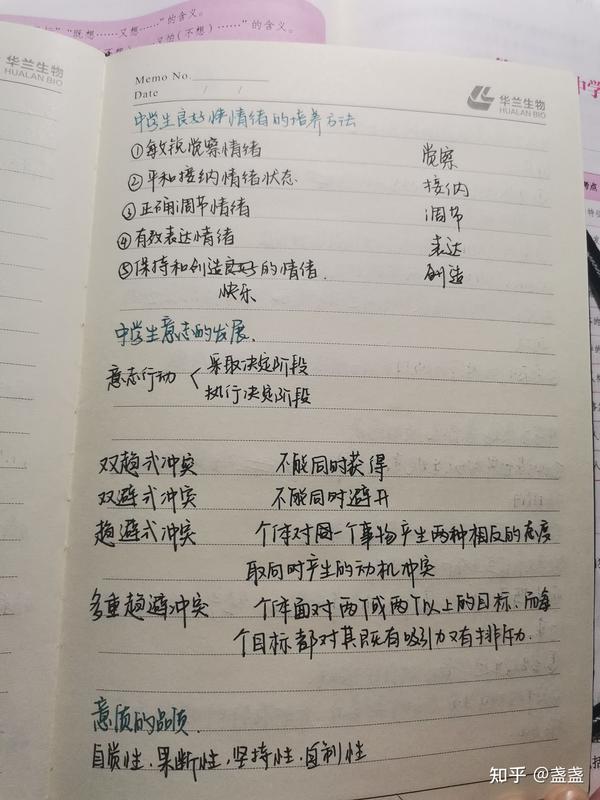 "既想……又想……"的含义。
又怕(不想)……"的含义。
华兰生物
HUALAN BIO
Memo No.
Date / /
华兰生物
HUALAN BIO
中学生良好性情绪的培养方法
①敏锐觉察情绪 觉察
②平和接纳情绪状态 接纳
③正确调节情绪 调节
④有效表达情绪 表达
⑤保持和创造良好的情绪. 创造
快乐
中学生意志的发展.
意志行动 < 采取决定阶段
执行决定阶段
双趋式冲突 不能同时获得
双避式冲突 不能同时避开
趋避式冲突 个体对同一个事物产生两种相反的态度
取向时产生的动机冲突
多重趋避冲突 个体面对两个或两个以上的目标.而每
个目标都对其既有吸引力又有排斥力.
意质的品质.
自质性.果断性,坚持性,自制性
知乎 @盏盏